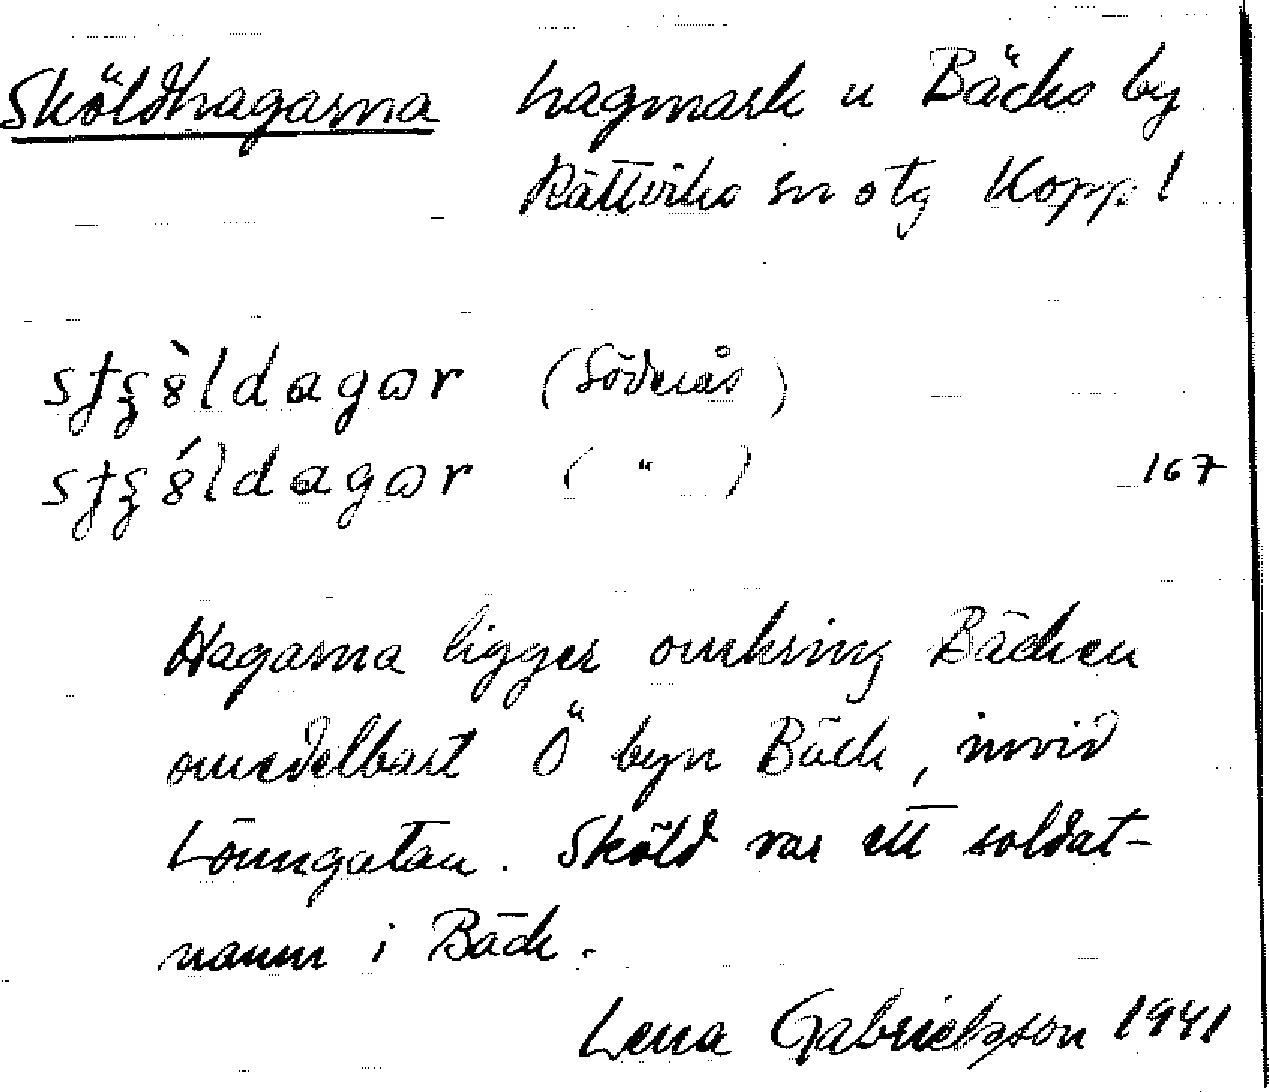 Sköldhagarna hagmark u Bäcks by
Rättviks sn o tg Kopp l
(Söderås)
( " )
167
Hagarna ligger omkring Bäcken
omedelbart Ö byn Bäck, invid
Lönngatan. Sköld var ett soldat-
namn i Bäck.
Lena Gabrielsson 1941